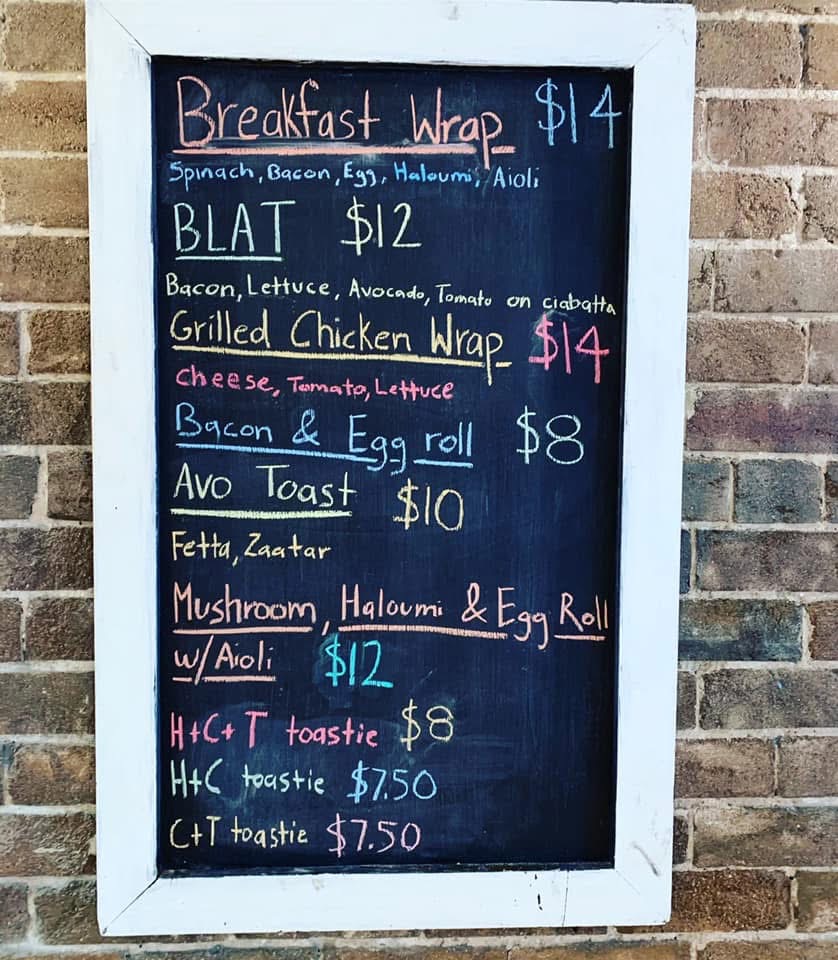 Breakfast Wrap $14
Spinach, Bacon, Egg, Haloumi, Aioli
BLAT $12
Bacon, Lettuce, Avocado, Tomato on ciabatta
Grilled Chicken Wrap $14
cheese, Tomato, Lettuce
Bacon & Egg roll $8
Avo Toast $10
Fetta, Zaatar
Mushroom, Haloumi & Egg Roll
w/Aioli $12
H+C+T toastie $8
H+C toastie $7.50
C+T toastie $7.50